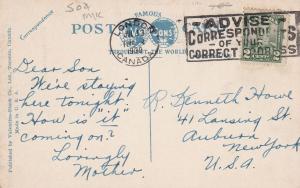 50¢
MK
Correspondence
FAMOUS
POST
THROUGHOUT THE WORLD
LONDON
CANADA
ADVISE
CORRESPONDENTS
OF YOUR
CORRECT ADDRESS
Published by Valentine-Black Co., Ltd., Toronto, Canada.
Made in
Dear Son
We're staying
here tonight.
How is "it"
coming on?
Lovingly
Mother.
R. Kenneth Howe
41 Lansing St.
Auburn
New York
U.S.A.